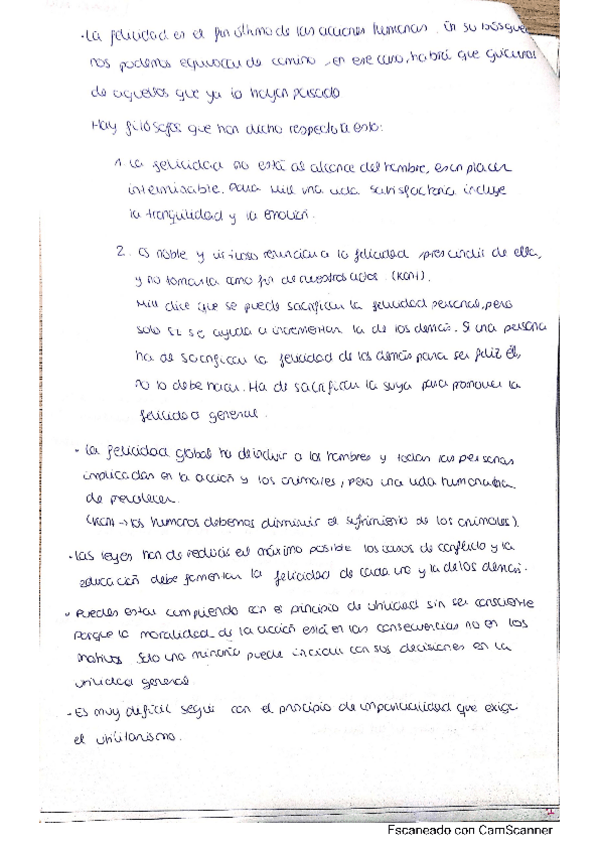 ·La felicidad es el fin último de las acciones humanas. En su búsqueda
nos podemos equivocar de camino, en ese caso, habrá que guiarnos
de aquellos que ya lo hayan pasado
Hay filósofos que han dicho respecto a esto:
1. La felicidad no está al alcance del hombre, es un placer
interminable. Para Mill una vida satisfactoria incluye
la tranquilidad y la emoción.
2. Es noble y virtuoso renunciar a la felicidad, prescindir de ella,
y no tomarla como fin de nuestros actos. (Kant).
Mill dice que se puede sacrificar la felicidad personal, pero
solo si se ayuda a incrementar la de los demás. Si una persona
ha de sacrificar la felicidad de los demás para ser feliz él,
no lo debe hacer. Ha de sacrificar la suya para promover la
felicidad general.
- La felicidad global ha de incluir a los hombres y todas las personas
implicadas en la acción y los animales, pero una vida humana ha
de prevalecer.
(Kant → los humanos debemos disminuir el sufrimiento de los animales).
- Las leyes han de reducir al máximo posible los casos de conflicto y la
educación debe fomentar la felicidad de cada uno y la de los demás.
· Puedes estar cumpliendo con el principio de utilidad sin ser consciente
porque la moralidad de la acción está en las consecuencias no en los
motivos. Solo una minoría puede incidir con sus decisiones en la
utilidad general
- Es muy difícil seguir con el principio de imparcialidad que exige
el utilitarismo.
Escaneado con CamScanner